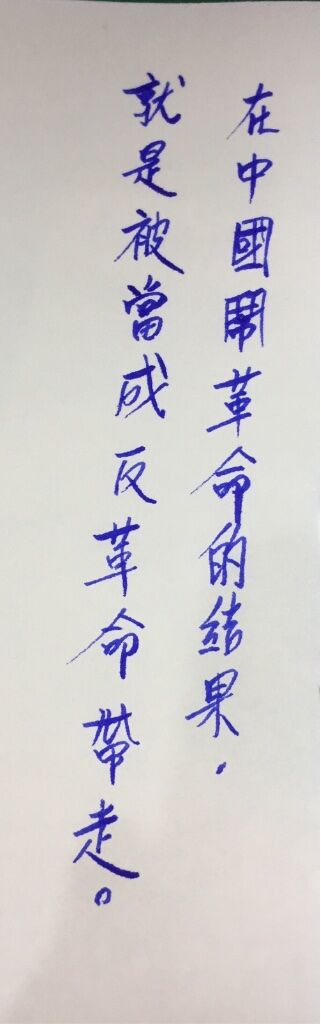 在中國鬧革命的結果，
就是被當成反革命帶走。